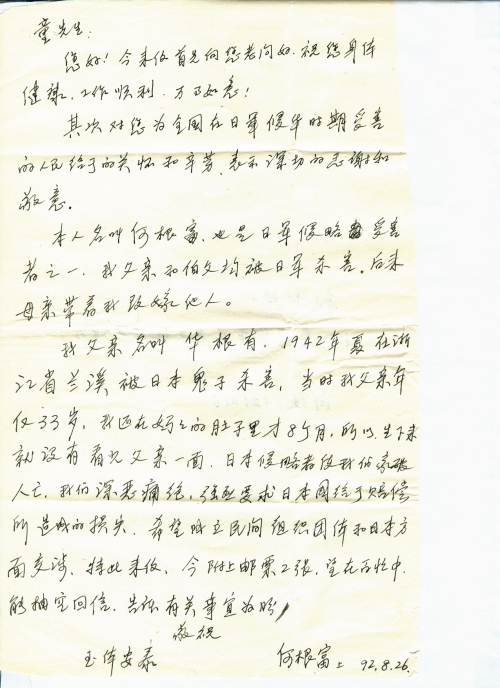 童先生:
您好!今来信首先向您老问好.祝您身体
健康、工作顺利、万事如意!
其次对您为全国在日军侵华时期受害
的人民给于的关怀和辛劳、表示深切的感谢和
敬意。
本人名叫何根富.也是日军侵略受害
者之一.我父亲和伯父均被日军杀害.后来
母亲带着我改嫁他人。
我父亲名叫华根有.1942年夏在浙
江省兰溪被日本鬼子杀害,当时我父亲年
仅33岁,我还在妈妈的肚子里才8个月,所以生下来
就没有看见父亲一面.日本侵略者使我们家破
人亡,我们深恶痛绝,强烈要求日本国给于赔偿
所造成的损失.希望成立民间组织团体和日本方
面交涉.特此来信,今附上邮票2张,望在百忙中
能抽空回信.告诉有关事宜为盼!
敬祝
玉体安泰
何根富上 92.8.26.